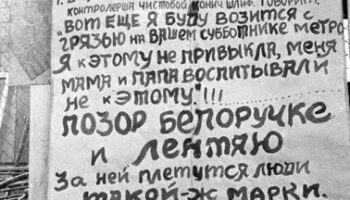 контролерша чистовой конич шлиф. говорит:
"вот еще я буду возится с
грязью на вашем субботнике метро
Я к этому не привыкла, меня
мама и папа воспитывали
не к этому"!!!
Позор белоручке
и лентяю
За ней плетутся люди
такой-ж марки.